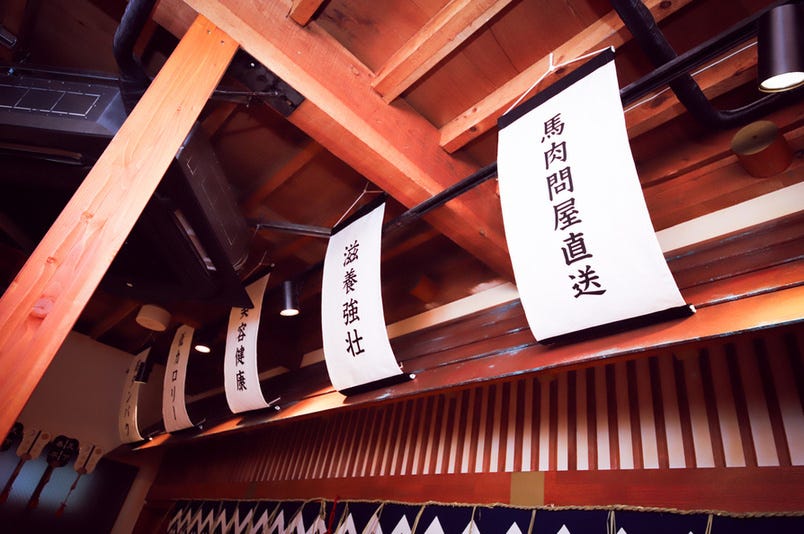 馬肉問屋直送
滋養強壮
美容健康
低カロリー